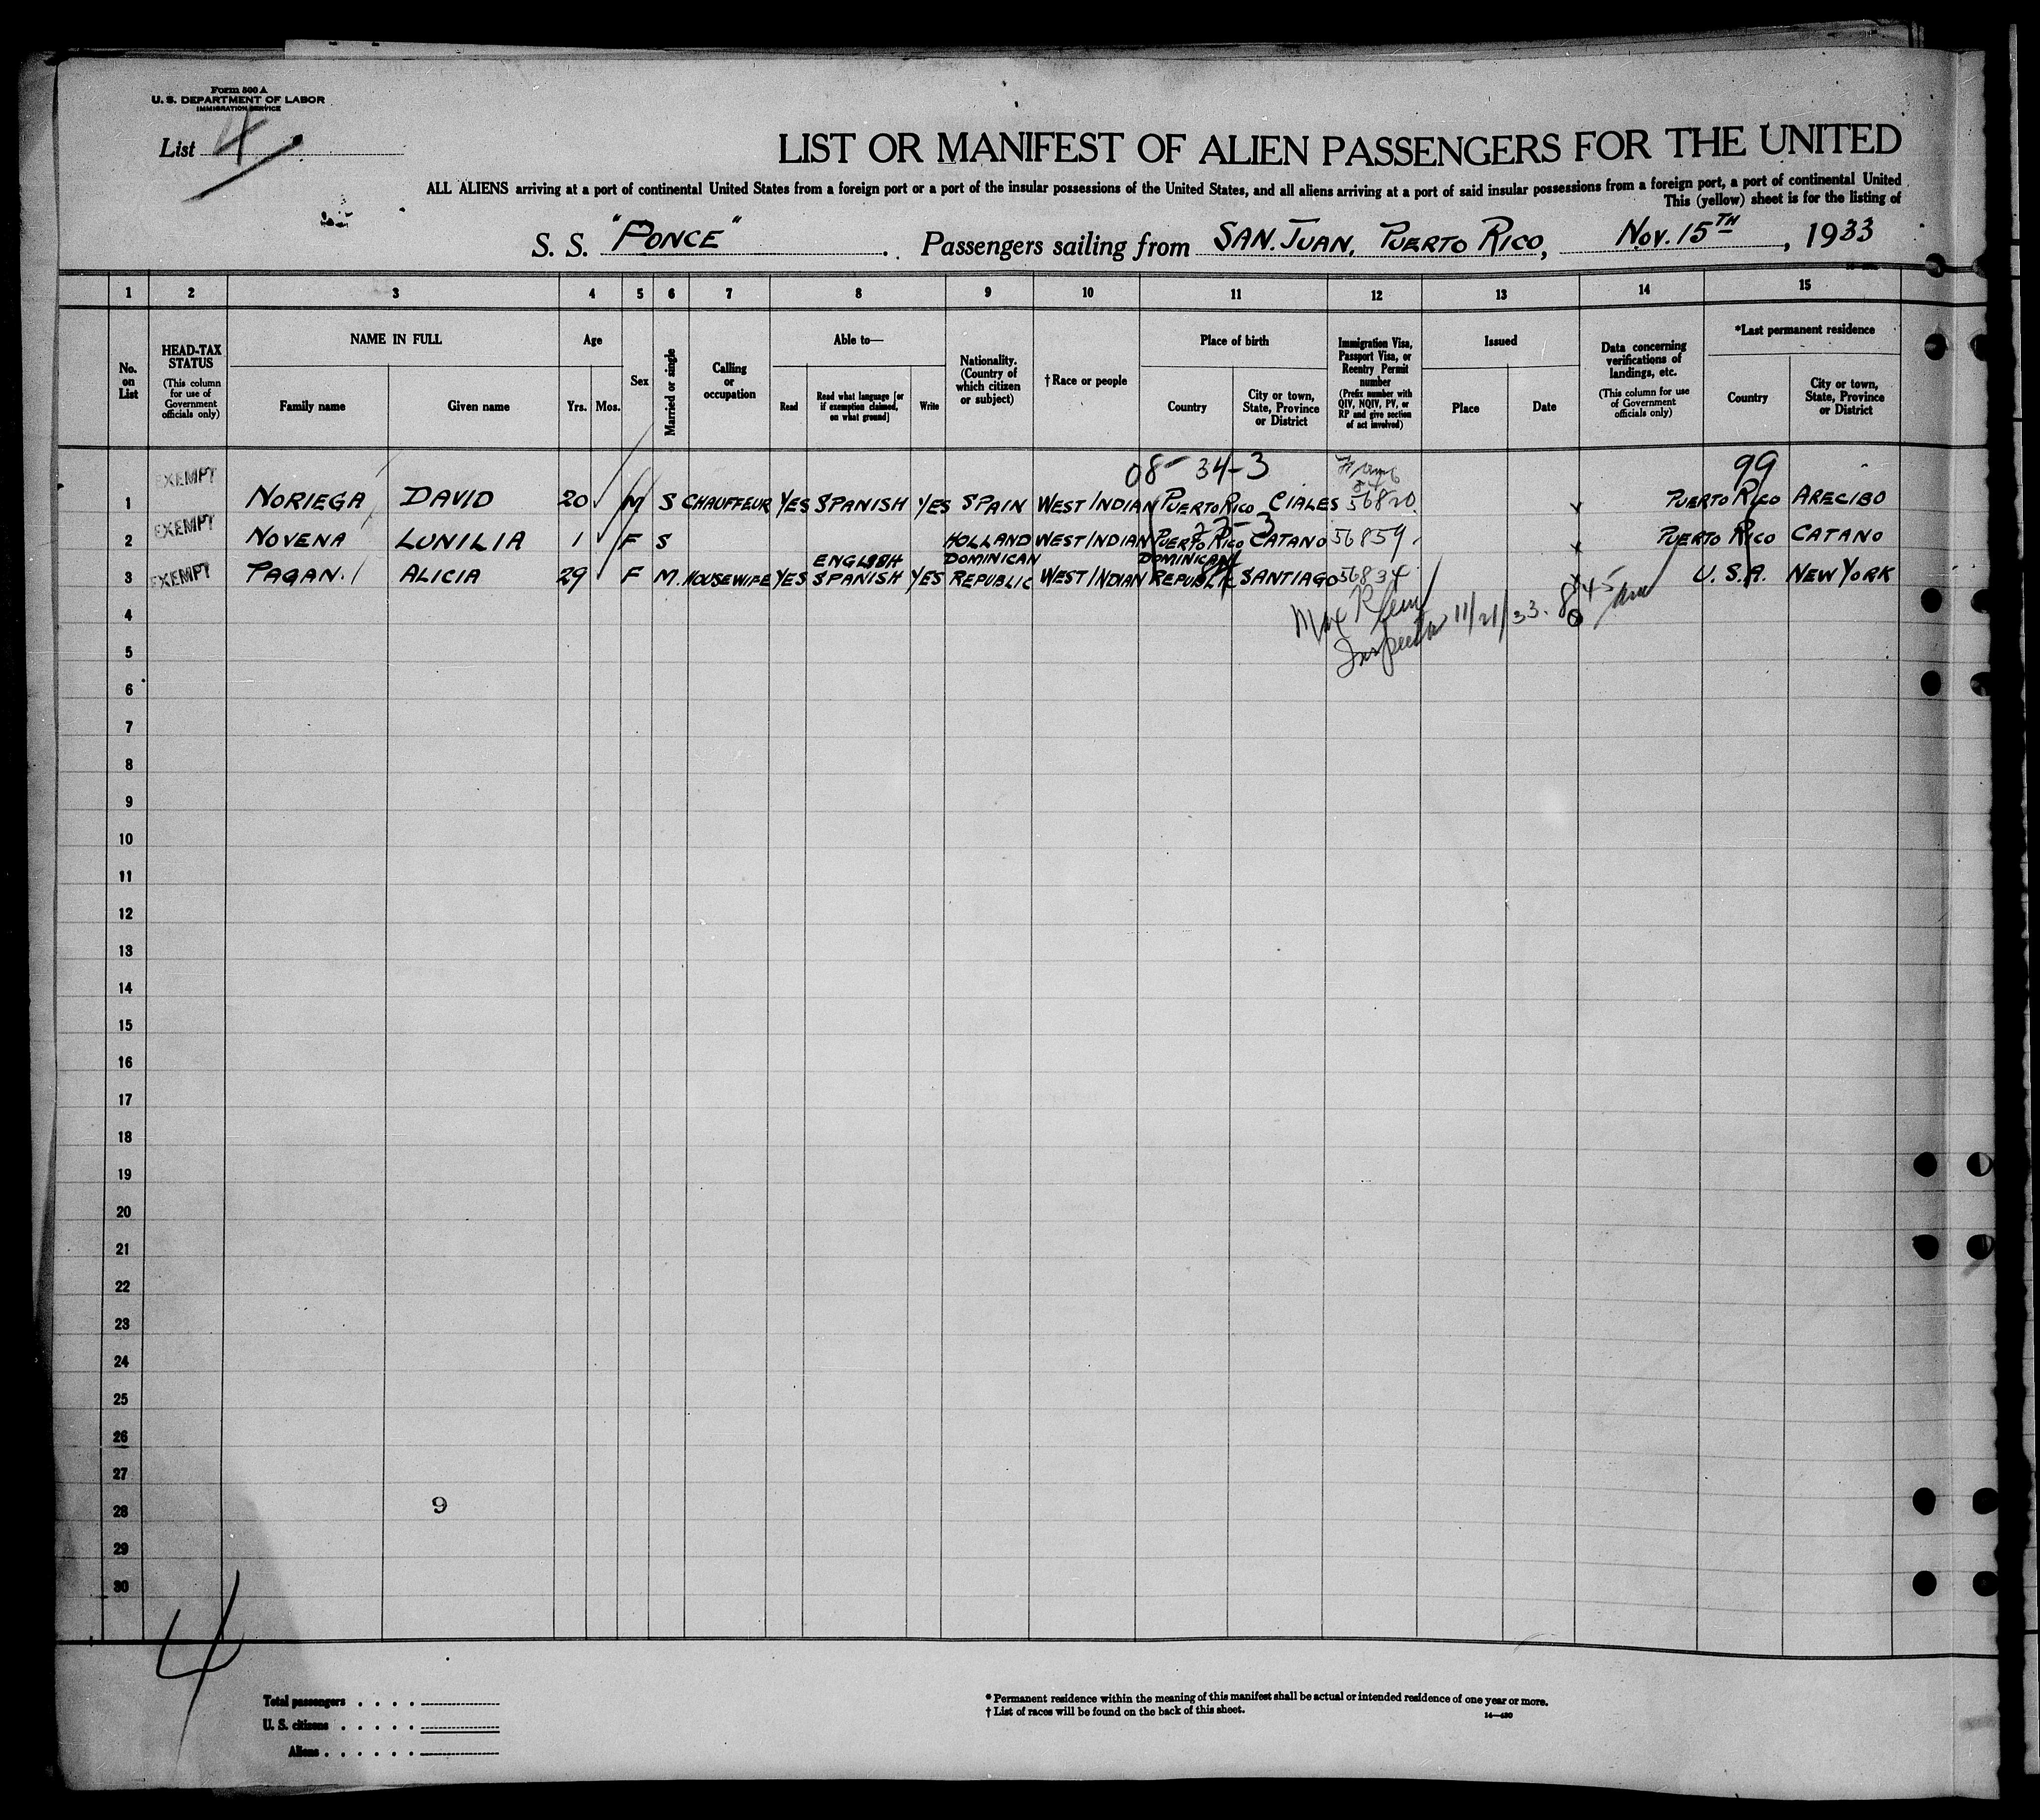 Form 500 A
U. S. DEPARTMENT OF LABOR
IMMIGRATION SERVICE
List 4
LIST OR MANIFEST OF ALIEN PASSENGERS FOR THE UNITED
ALL ALIENS arriving at a port of continental United States from a foreign port or a port of the insular possessions of the United States, and all aliens arriving at a port of said insular possessions from a foreign port, a port of continental United
This (yellow) sheet is for the listing of
S. S. "PONCE" . Passengers sailing from SAN. JUAN, PUERTO RICO, NOV. 15TH, 1933
1 2 3 4 5 6 7 8 9 10 11 12 13 14 15
No. on List
HEAD-TAX STATUS (This column for use of Government officials only)
NAME IN FULL
Family name
Given name
Age
Yrs.
Mos.
Sex
Married or single
Calling or occupation
Able to—
Read
Read what language [or if exemption claimed, on what ground]
Write
Nationality. (Country of which citizen or subject)
†Race or people
Place of birth
Country
City or town, State, Province or District
Immigration Visa, Passport Visa, or Reentry Permit number (Prefix number with QIV, NQIV, PV, or RP and give section of act involved)
Issued
Place
Date
Data concerning verifications of landings, etc. (This column for use of Government officials only)
*Last permanent residence
Country
City or town, State, Province or District
08- 34-3 99
1 EXEMPT NORIEGA DAVID 20 M S CHAUFFEUR YES SPANISH YES SPAIN WEST INDIAN PUERTO RICO CIALES 56820 PUERTO RICO ARECIBO
2 EXEMPT NOVENA LUNILIA 1 F S HOLLAND WEST INDIAN PUERTO RICO CATANO 56859 PUERTO RICO CATANO
3 EXEMPT PAGAN. ALICIA 29 F M. HOUSEWIFE YES ENGLISH SPANISH YES DOMINICAN REPUBLIC WEST INDIAN DOMINICAN REPUBLIC SANTIAGO 56834 U. S. A. NEW YORK
Max Klein
Inspector 11/21/33. 845 am
4
5
6
7
8
9
10
11
12
13
14
15
16
17
18
19
20
21
22
23
24
25
26
27
28 9
29
30
4
Total passengers . . . .
U. S. citizens . . . . .
Aliens . . . . . .
* Permanent residence within the meaning of this manifest shall be actual or intended residence of one year or more.
† List of races will be found on the back of this sheet.
14—430